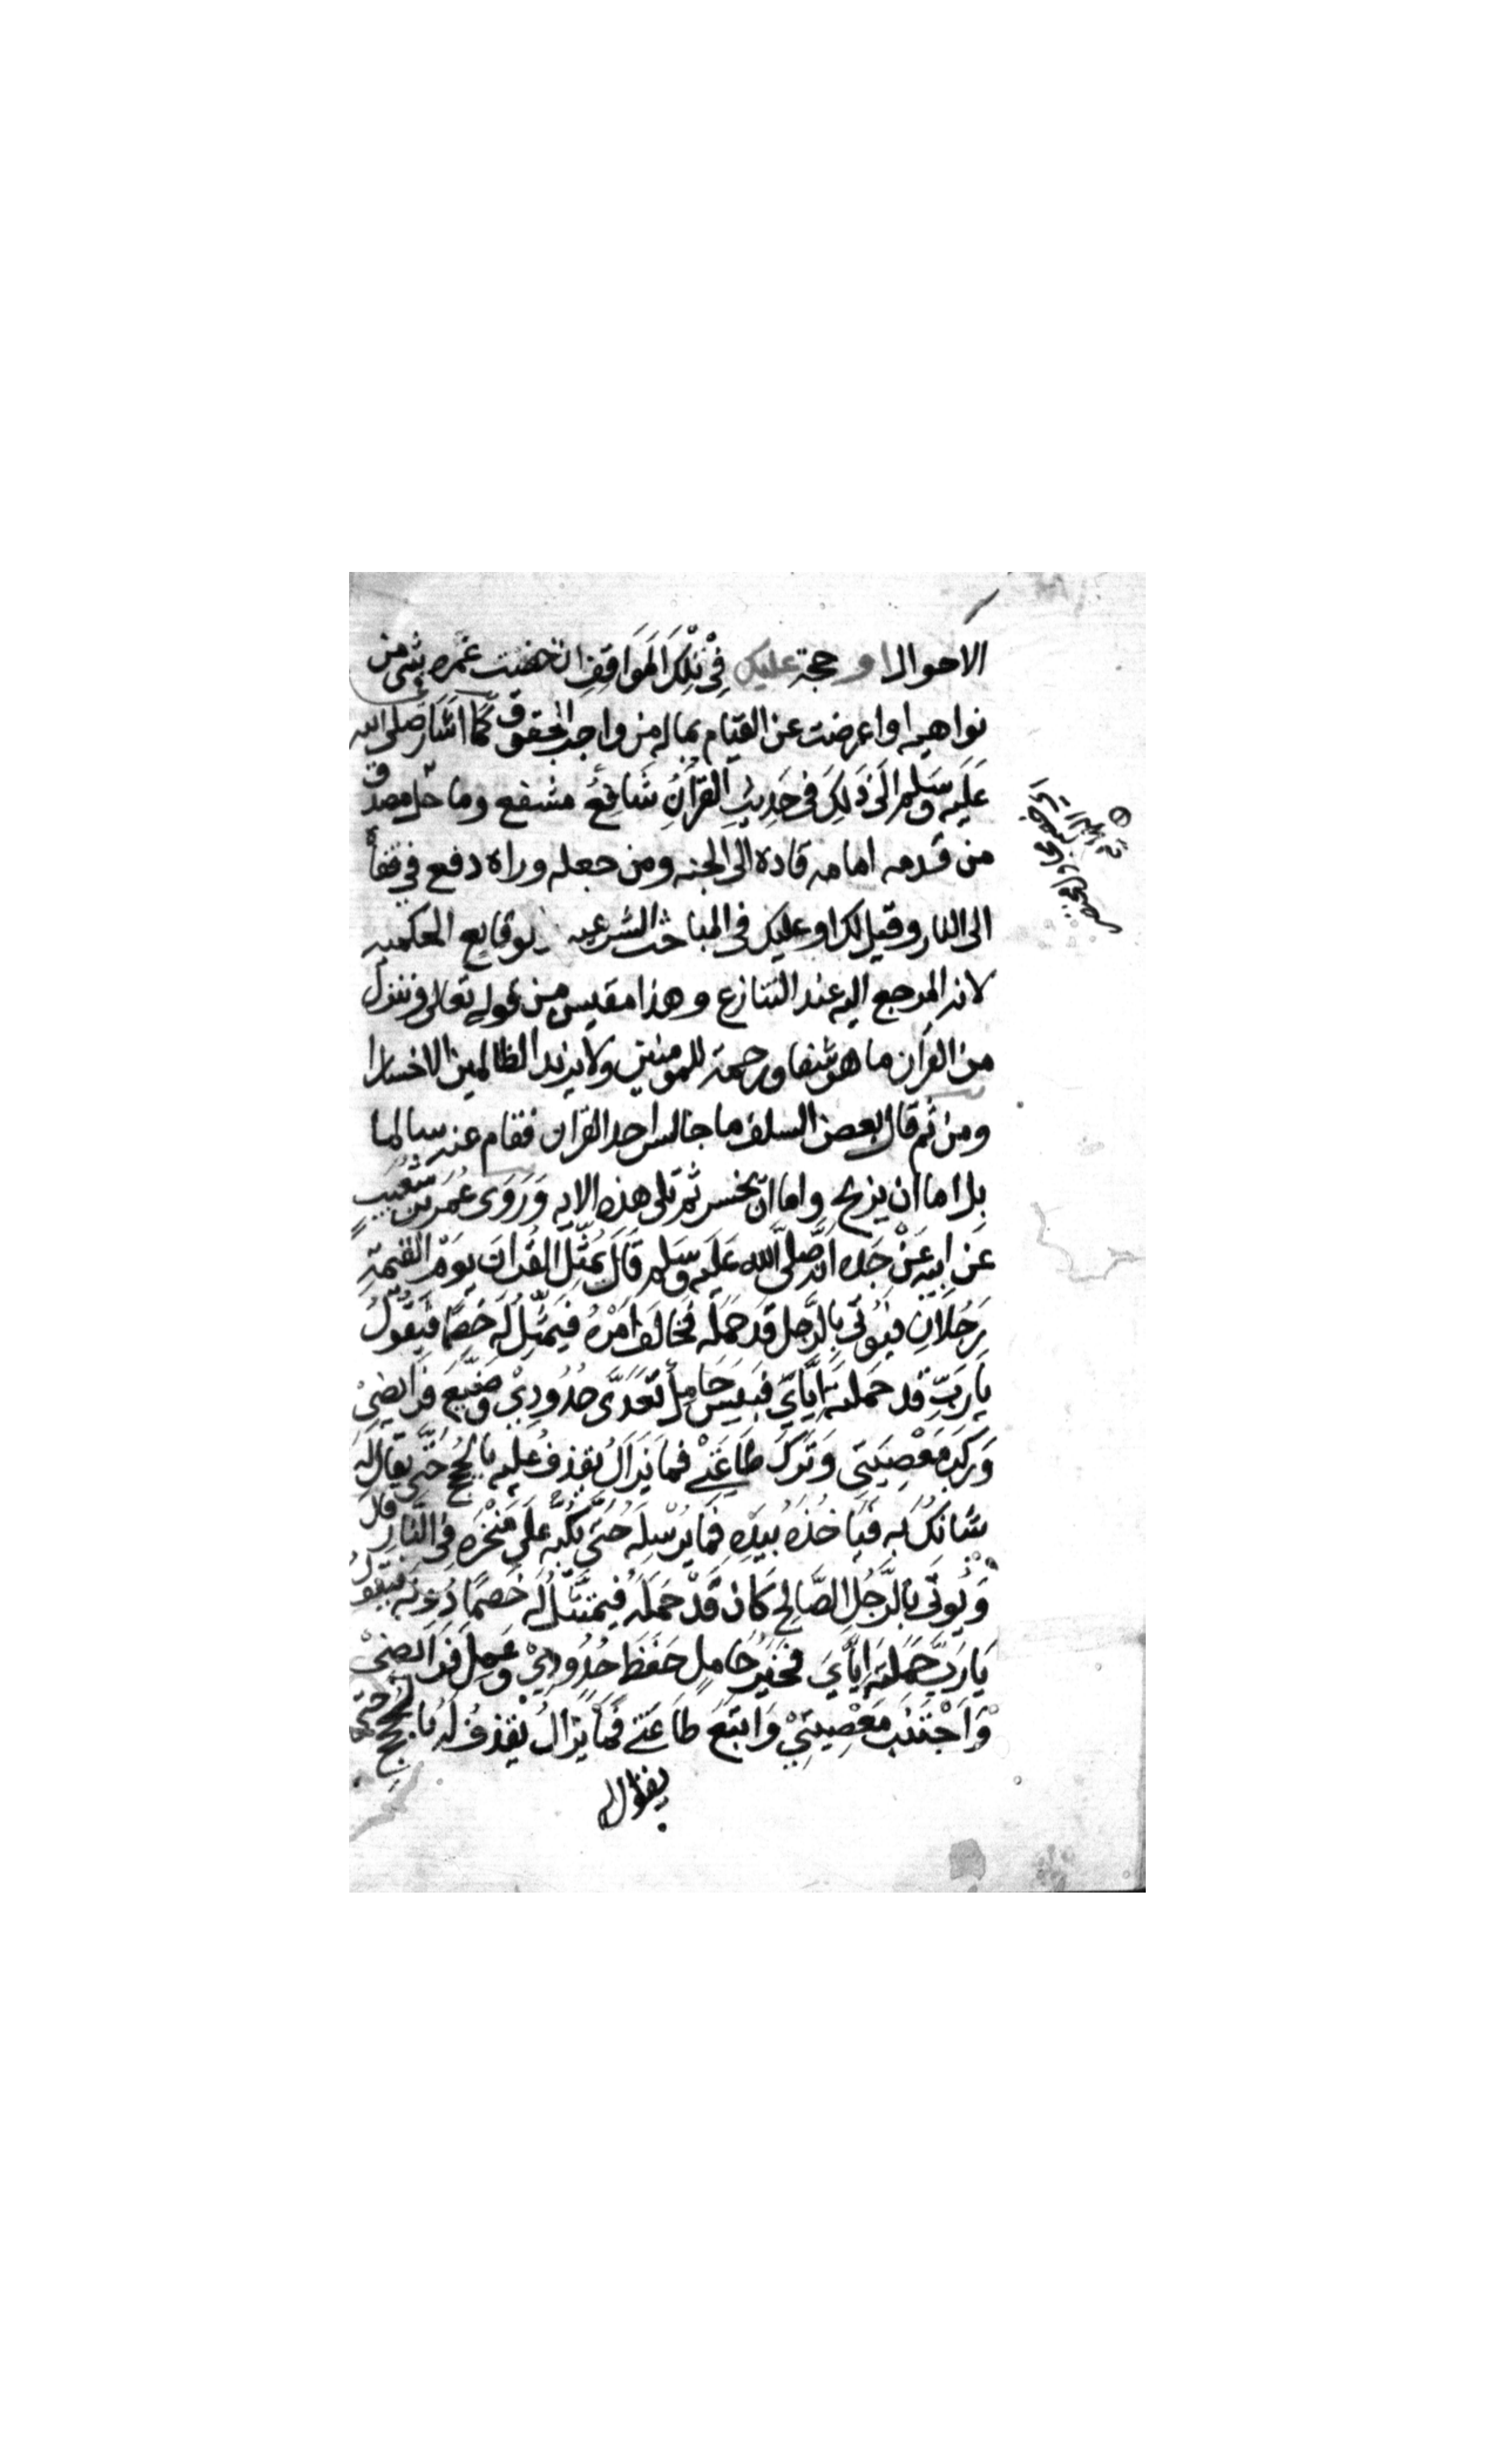 الاحوال او حجة عليك فِيْ تِلْكَ الْمَوَاقِفِ ان خضت غمره بشى من
نواهيه او اعرضت عن القيام بماله من واجب الحقوق كَمَا اَشَارَ صلى الله
عَلَيهِ وَسَلم اِلَى ذَلِكَ فى حَدِيثِ القرآنُ شَافِعٌ مشفع وما حل مصدق
من قدمه امامه قاده الى الجنه ومن جعله وراه دفع في قفاه
الى النار وقيل لك او عليك فى المباحث الشرعيه والوقايع الحكميه
لانه المرجع اليه عند التنازع وهذا مقيس من قوله تعالى وننزل
من القرآن ما هو شفا ورحمة للمومنين ولا يزيد الظالمين الا خسارا
ومن ثم قال بعض السلف ما جالس احد القران فقام عنه سالما
بل اما ان يربح واما ان يخسر ثم تلى هذه الايه وَرَوَى عمرُ بن شُعَيب
عَن ابيه عَنْ جَده اَنه صلى الله عَلَيه وَسَلم قَالَ يُمَثَّلُ القُرانُ يَوْمَ القيمَة
رَجُلاَنِ فيُوتَى بِالرَّجل قَد حَمَلَه فَخَالَفَ اَمْرَهُ فيَتمَثلُ لَه خَصمًا فَيَقُولُ
يَا رَبِّ قد حَمَلتَه اِيَّايَ فبَيسَ حَامِلٌ تَعَدَّى حُدُودِيْ وَضيَّعَ فَرَايضِيْ
وَرَكبَ مَعْصِيَتِي وَتَركَ طَاعَتِيْ فمَا يَزَالُ يقذفُ عليه بالحُجَج حَتَّى يقَالَ لَهُ
شَانكَ بِه فَيَاخُذهُ بيَدِهِ فَمَا يُرْسِلهُ حَتَّى يَكُبَّه عَلَى مَنْخَرَه فِى النَّارِ قال
وَيُوتَى بالرَّجُلِ الصَّالِحِ كَانَ قَدْ حَمَلَهُ فيتمثَّلُ لَه خَصمًا دُونَه فيقول
يَا رَبِّ حَمَلتَه اِيَّايَ فخَيْرُ حَامِلٍ حَفِظَ حُدُودِيْ وعَمِلَ فَرَايضِىْ
وَاَجْتَنَبَ مَعْصِيَتِيْ وَاتَبَعَ طَاعَتِي فَمَا يَزَالُ يقذفُ لَه بالحجج حتى
يقال له